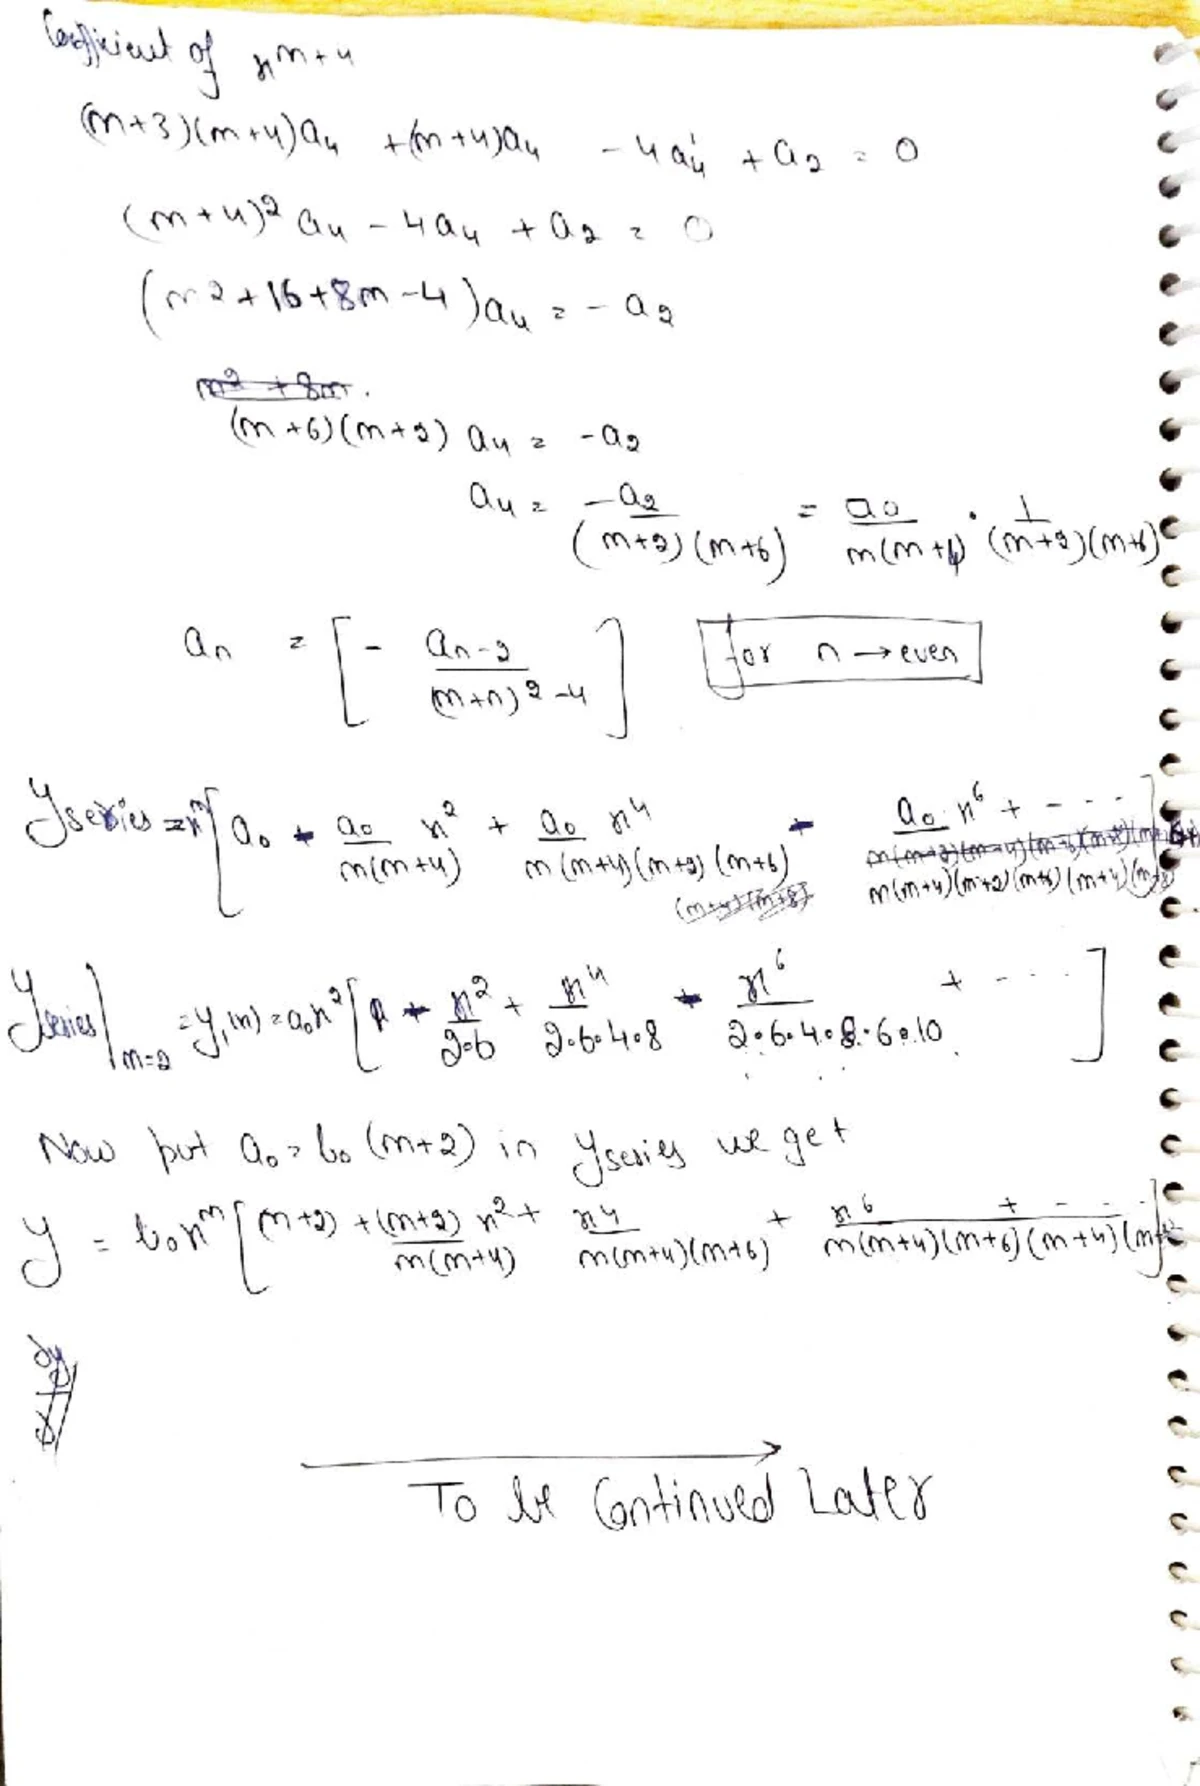 Coefficient of x^{m+4}
(m+3)(m+4)a₄ + (m+4)a₄ - 4a₄ + a₂ = 0
(m+4)² a₄ - 4a₄ + a₂ = 0
(m2 + 16 + 8m - 4)a₄ = - a₂
m² + 8m.
(m+6)(m+2) a₄ = - a₂
a₄ = -a₂/((m+2)(m+6)) = a₀/(m(m+4)) · 1/((m+2)(m+6))
aₙ = [ - aₙ₋₂/((m+n)² - 4) ] for n → even
y series = x^m [ a₀ + a₀/(m(m+4)) x² + a₀ x⁴/(m(m+4)(m+2)(m+6)) + a₀ x⁶/(m(m+4)(m+2)(m+6)(m+4)(m+8)) + - - - - ]
(m+4)(m+8)
y series |_{m=2} = y₁(x) = a₀x² [ 1 + x²/(2·6) + x⁴/(2·6·4·8) + x⁶/(2·6·4·8·6·10) + - - - - ]
Now put a₀ = b₀ (m+2) in y series we get
y = b₀x^m [ (m+2) + (m+2)/(m(m+4)) x² + x⁴/(m(m+4)(m+6)) + x⁶/(m(m+4)(m+6)(m+4)(m+8)) + - - - ]
dy
To be Continued Later